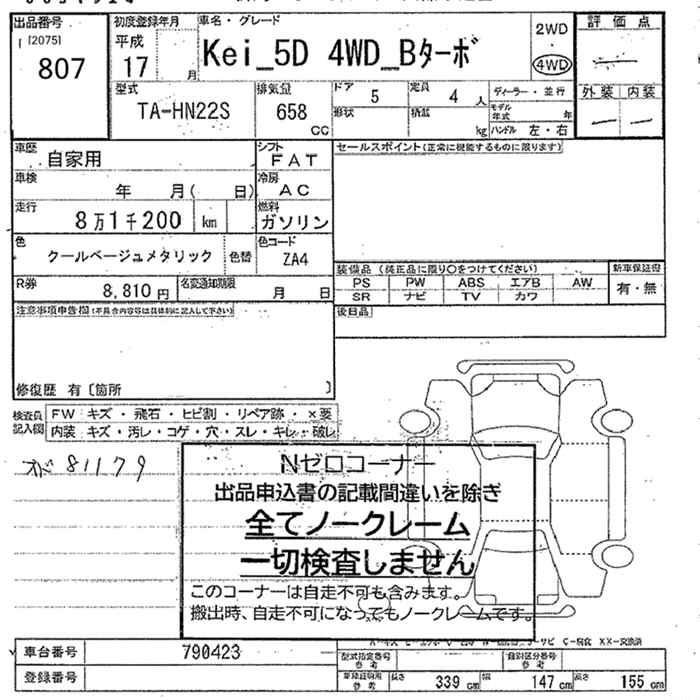 出品番号
[2075]
807
初度登録年月
平成
17 月
車名・グレード
Kei_5D 4WD_Bターボ
2WD
・
4WD
評価点
外装 内装
型式
TA-HN22S
排気量
658
CC
ドア 5
定員 4 人
形状
積載 kg
ディーラー・並行
モデル年式 年
ハンドル 左・右
車歴
自家用
シフト
FAT
セールスポイント(正常に機能するものに限ります)
車検
年 月( 日)
冷房
AC
走行
8万1千200 km
燃料
ガソリン
色
クールベージュメタリック
色替
色コード
ZA4
装備品 (純正品に限り○をつけてください)
新車保証書
PS PW ABS エアB AW
SR ナビ TV カワ
有・無
R券
8,810 円
名変通知期限
月 日
後日品
注意事項申告欄(不具合内容等は具体的に記入して下さい)
修復歴 有〔箇所 〕
検査員記入欄
FW キズ・飛石・ヒビ割・リペア跡・×要
内装 キズ・汚レ・コゲ・穴・スレ・キレ・破レ
メ 81179
Nゼロコーナー
出品申込書の記載間違いを除き
全てノークレーム
一切検査しません
このコーナーは自走不可も含みます。
搬出時、自走不可になってもノークレームです。
車台番号
790423
型式指定番号
参考
類別区分番号
参考
登録番号
車検証明用
参考
長さ 339 cm
幅 147 cm
高さ 155 cm